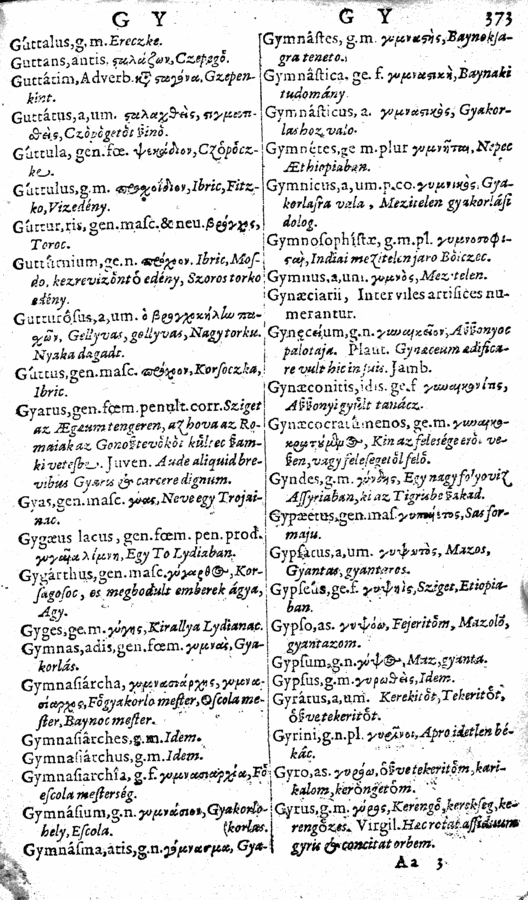 G Y
G Y 373
Guttalus, g.m. Ereczke.
Guttans, antis, ςαλάζων, Czepegȍ.
Guttátim, Adverb. καὶ ςαγόνα, Gzepen-
kint.
Guttátus, a, um. ςαλαχθεὶς,
Czȍpȍgetȍt
Guttula, gen. fœ. ψεκάδιον, Czȍpȍcz-
ke.
Guttulus, g.m. προχοίδιον, Ibric, Fitz-
ko, Vizedény.
Guttur, ris, gen. masc. & neu. βρόγχος,
Toroc.
Gutturnium, ge.n. πρόχοον. Ibric, Mos-
do, kezrevizȍntȍ edény, Szoros torko
edény.
Gutturósus, a, um. ὁ
Gellyvas, gellyvas, Nagy torku.
Nyaka dagadt.
Guttus, gen. masc. πρόχοον, Korsoczka,
Ibric.
Gyarus, gen. fœm. penult. corr. Sziget
az Ægæum tengeren, az hova az Ro-
maiak az
ki vetesbe. Juven. Aude aliquid bre-
vibus Gyaris & carcere dignum.
Gyas, gen. masc. γύας, Neve egy Trojai-
nac.
Gygæus lacus, gen. fœm. pen. prod.
γυγαῖα λίμνη, Egy To Lydiaban.
Gygarthus, gen. masc. Kor-
sagosoc, es megbodult emberek ágya,
Agy.
Gyges, ge.m. γύγης, Kirallya Lydianac.
Gymnas, adis, gen. fœm. γυμνὰς, Gya-
korlás.
Gymnasiárcha, γυμνασιάρχης, γυμνα-
σίαρχος, Fȍgyakorlo mester, Oscola me-
ster, Baynoc mester.
Gymnasiárches, g.m. Idem.
Gymnasiárchus, g.m. Idem.
Gymnasiarchía, g.f. γυμνασιαρχία, Fȍ
escola mesterség.
Gymnásium, g.n. γυμνάσιον, Gyakorlo-
hely, Escola. (korlas.
Gymnásma, atis, g.n. γύμνασμα, Gya-
Gymnástes, g.m. γυμναςὴς, Baynoksa-
gra teneto.
Gymnástica. ge. f. γυμναςικὴ, Baynaki
tudomány.
Gymnásticus, a. γυμναςικὸς, Gyakor-
lashoz valo.
Gymnétes, ge m. plur γυμνῆται, Nepec
Æthiopiaban.
Gymnicus, a, um. p. co. γυμνικὸς, Gya-
korlasra vala, Mezitelen gyakorlási
dolog.
Gymnosophístæ, g.m.pl. γυμνοσοφι-
ςαὶ, Indiai mezitelen jaro Bȍlczec.
Gymnus, a, um. γυμνὸς, Mez telen.
Gynæciarii, Inter viles artifices nu-
merantur.
Gynæceium, g.n. γυναικεῖον, Aßßonyoc
palotaja. Plaut. Gynæceum ædifica-
re vult hic in suis. Jamb.
Gynæconitis, idis. ge.f γυναικωνίτις,
Aßßonyi gyuͤlt tanácz.
Gynæcocratúmenos, ge.m. γυναικο-
κρατούμενος, Kin az felesége erȍ ve-
ßen, vagy feleségetȍl félȍ.
Gyndes, g.m. γύνδης, Egy nagy folyoviz
Assyriaban, ki az Tigrisbe ßakad.
Gypæetus, gen. mas. γυπαίετος, Sas for-
maju.
Gypsatus, a, um. γυψωτὸς, Mazos,
Gyantas, gyantaros.
Gypseús, ge.f. Sziget, Etiopia-
ban.
Gypso, as. γυψόω, Fejeritȍm, Mazolȍ,
gyantazom.
Gypsum, g.n. γύψος, Maz, gyanta.
Gypsus, g.m. Idem.
Gyrátus, a, um. Kerekitȍt, Tekeritȍt,
ȍßve tekeritȍt.
Gyrini, g.n.pl. γυρῖνοι, Apro idetlen bé-
kác.
Gyro, as. γυρόω, ȍßve tekeritȍm, kari-
kalom, kerȍngetȍm.
Gyrus, g.m. γύρος, Kerengȍ, kerekseg, ke-
rengȍzes. Virgil. Hac rotat assiduum
gyris & concitat orbem.
Aa 3